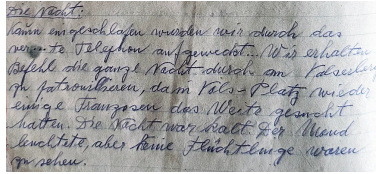 Die Nacht:
Kaum eingeschlafen wurden wir durch das
ver...te Telephon aufgeweckt... Wir erhalten
Befehl die ganze Nacht durch am
zu patrouillieren, da in Vals-Platz wieder
einige Franzosen das Weite gesucht
hatten. Die Nacht war kalt. Der Mond
leuchtete, aber keine Flüchtlinge waren
zu sehen.